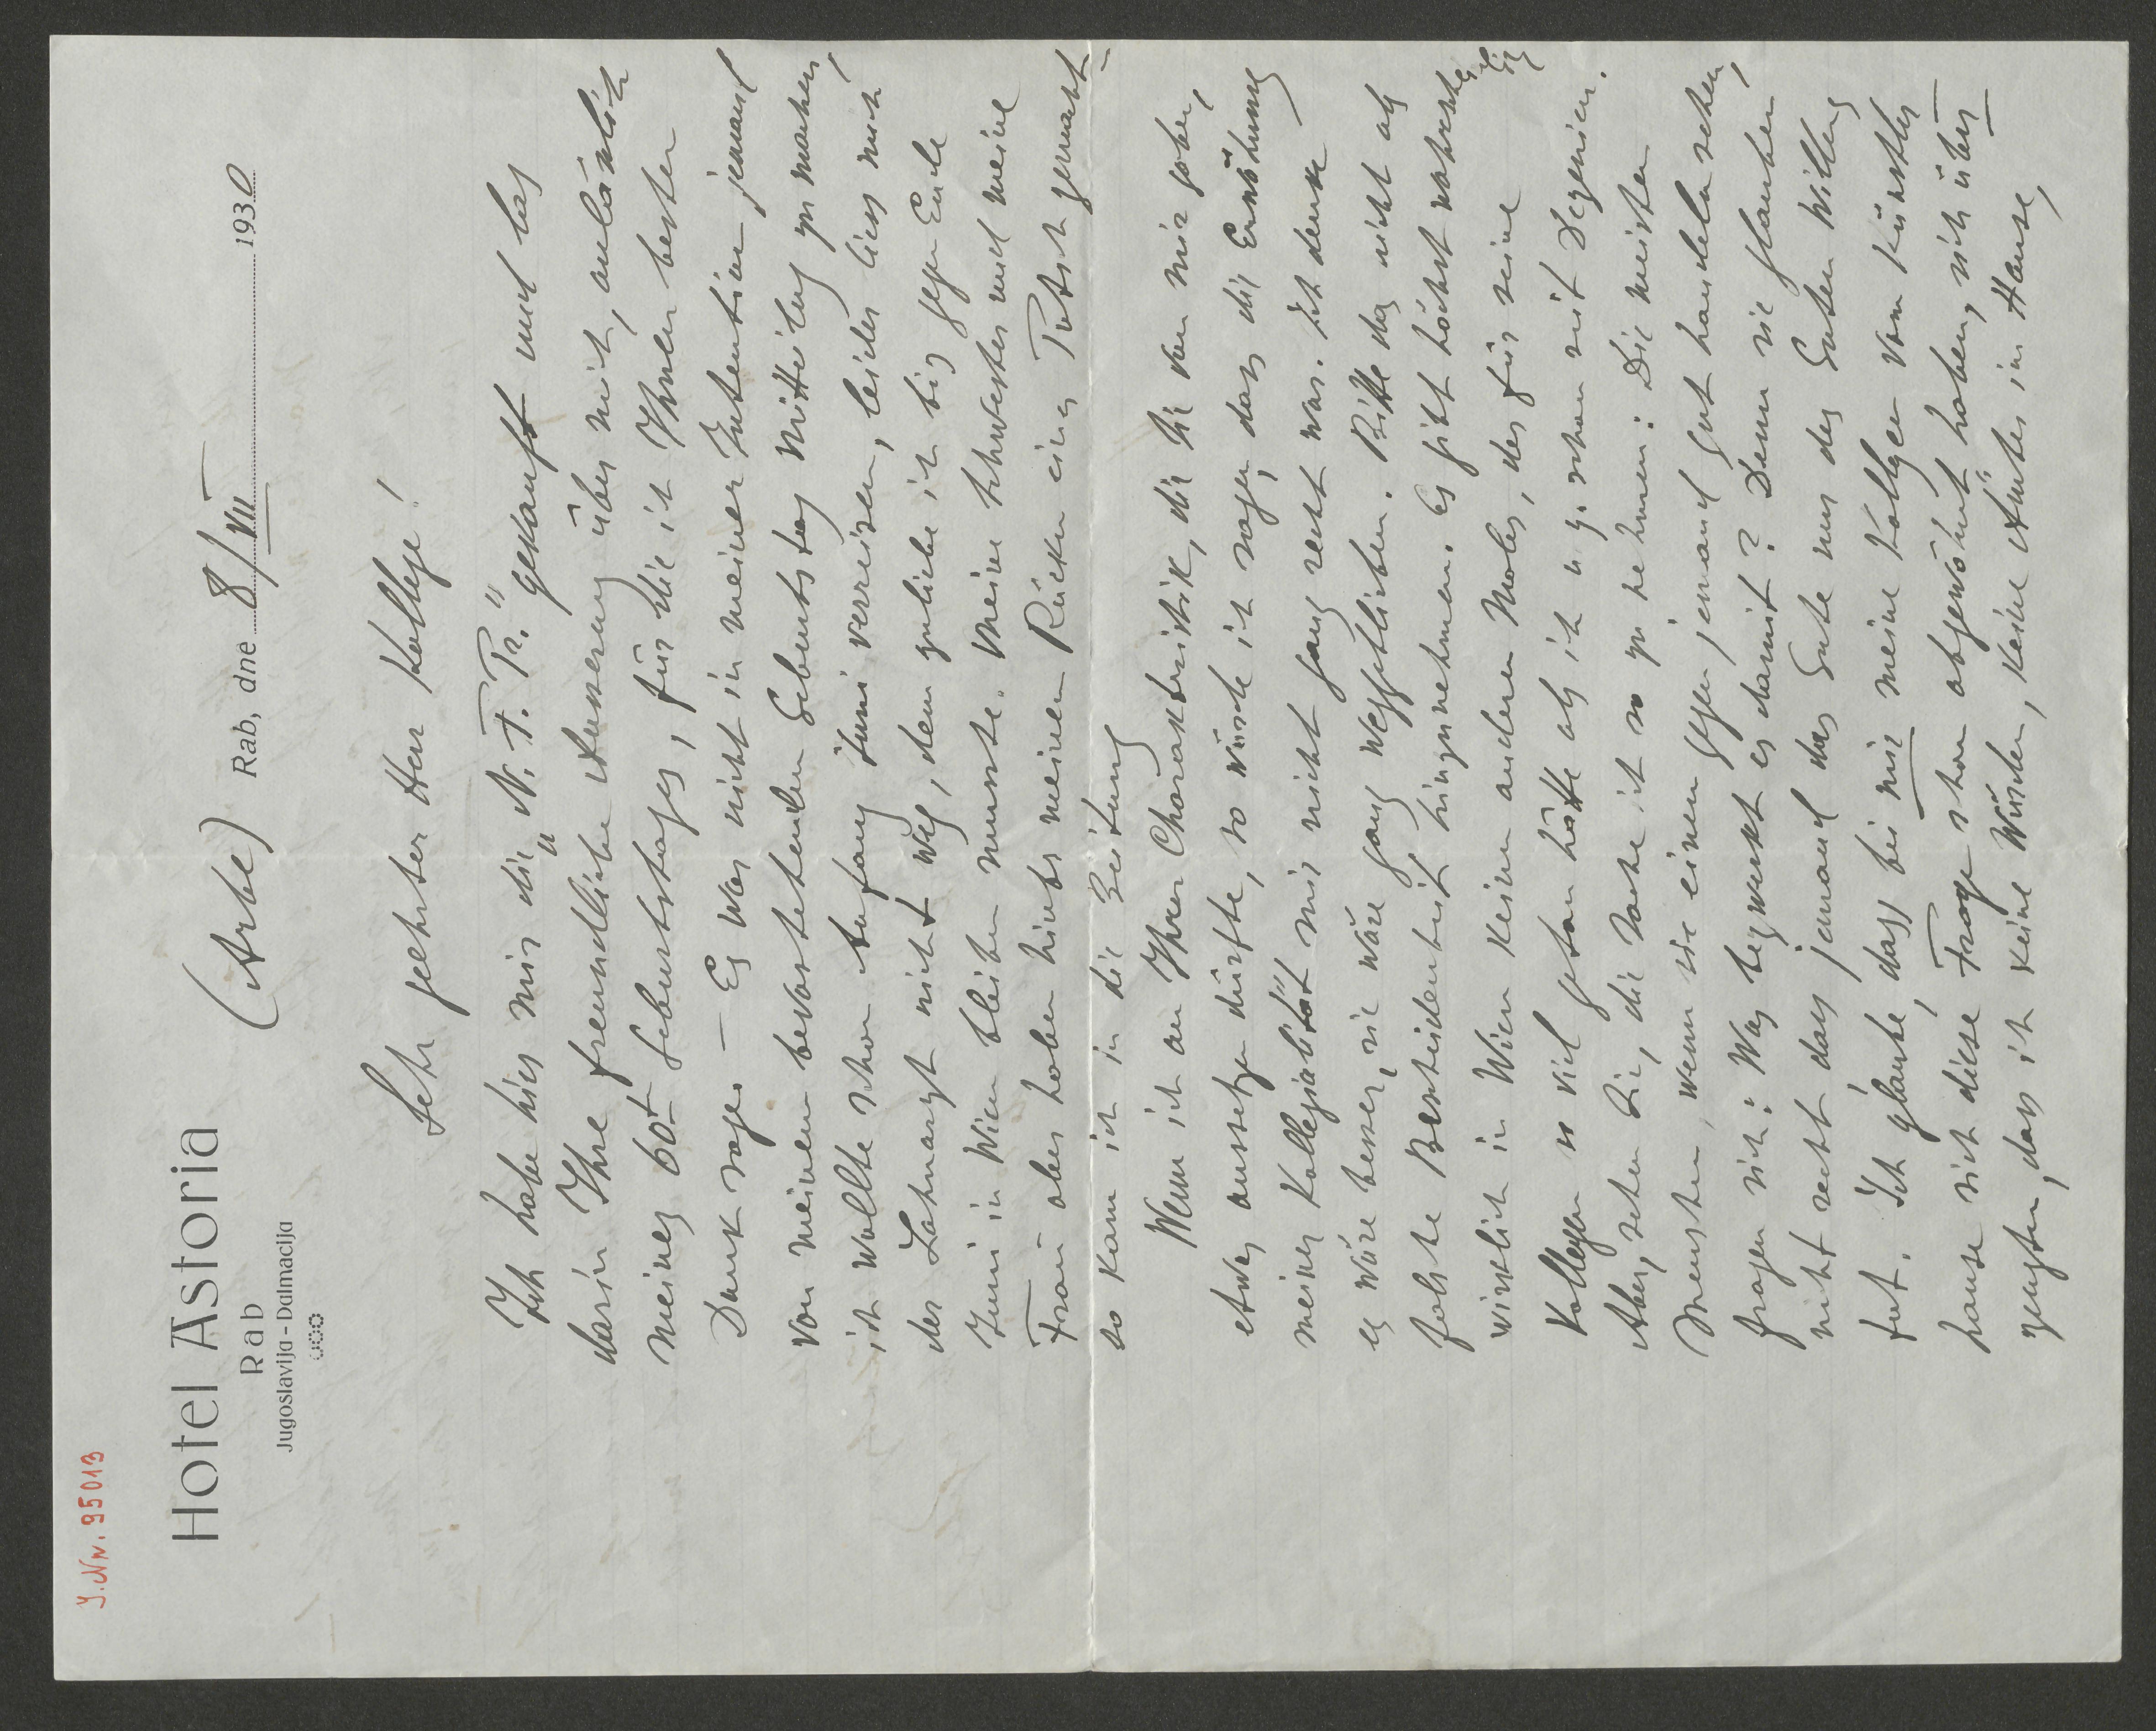 J.Nr. 95013
Hotel Astoria
Rab
Jugoslavija - Dalmacija
(Arbe) Rab, dne 8/VII 1930
Sehr geehrter Herr Kollege!
Ich habe hier mir die „N. F. Pr." gekauft und las
darin Ihre freundliche Äusserung über mich, anlässlich
meines 60t Geburtstages, für die ich Ihnen besten
Dank sage. — Es war nicht in meiner Intention jemand
von meinem bevorstehenden Geburtstag Mitteilung zu machen,
ich wollte schon Anfang Juni verreisen, leider liess mich
der Zahnarzt nicht weg, dem zuliebe ich bis gegen Ende
Juni in Wien bleiben musste. Meine Schwester und meine
Frau aber haben hinter meinem Rücken einen Putsch gemacht –
so kam ich in die Zeitung
Wenn ich an Ihrer Charakteristik, die Sie von mir gaben,
etwas aussetzen dürfte, so würde ich sagen, dass die Erwähnung
meiner Kollegialität mir nicht ganz recht war. Ich denke
es wäre besser, sie wäre ganz weggeblieben. Bitte das nicht als
falsche Bescheidenheit hinzunehmen. Es gibt höchst wahrscheinlich
wirklich in Wien keinen anderen Maler, der für seine
Kollegen so viel getan hätte als ich u. z. schon seit Dezennien.
Aber, sehen Sie, die Sache ist so zu nehmen: Die meisten
Menschen, wenn sie einen gegen jemand gut handeln sehen,
fragen sich: Was bezweckt er damit? Denn sie glauben
nicht recht dass jemand das Gute nur des Guten willen
tut. Ich glaube, dass bei mir meine Kollegen vom Künstler-
hause sich diese Frage schon abgewöhnt haben, sich über-
zeugten, dass ich keine Würden, keine Ämter im Hause,